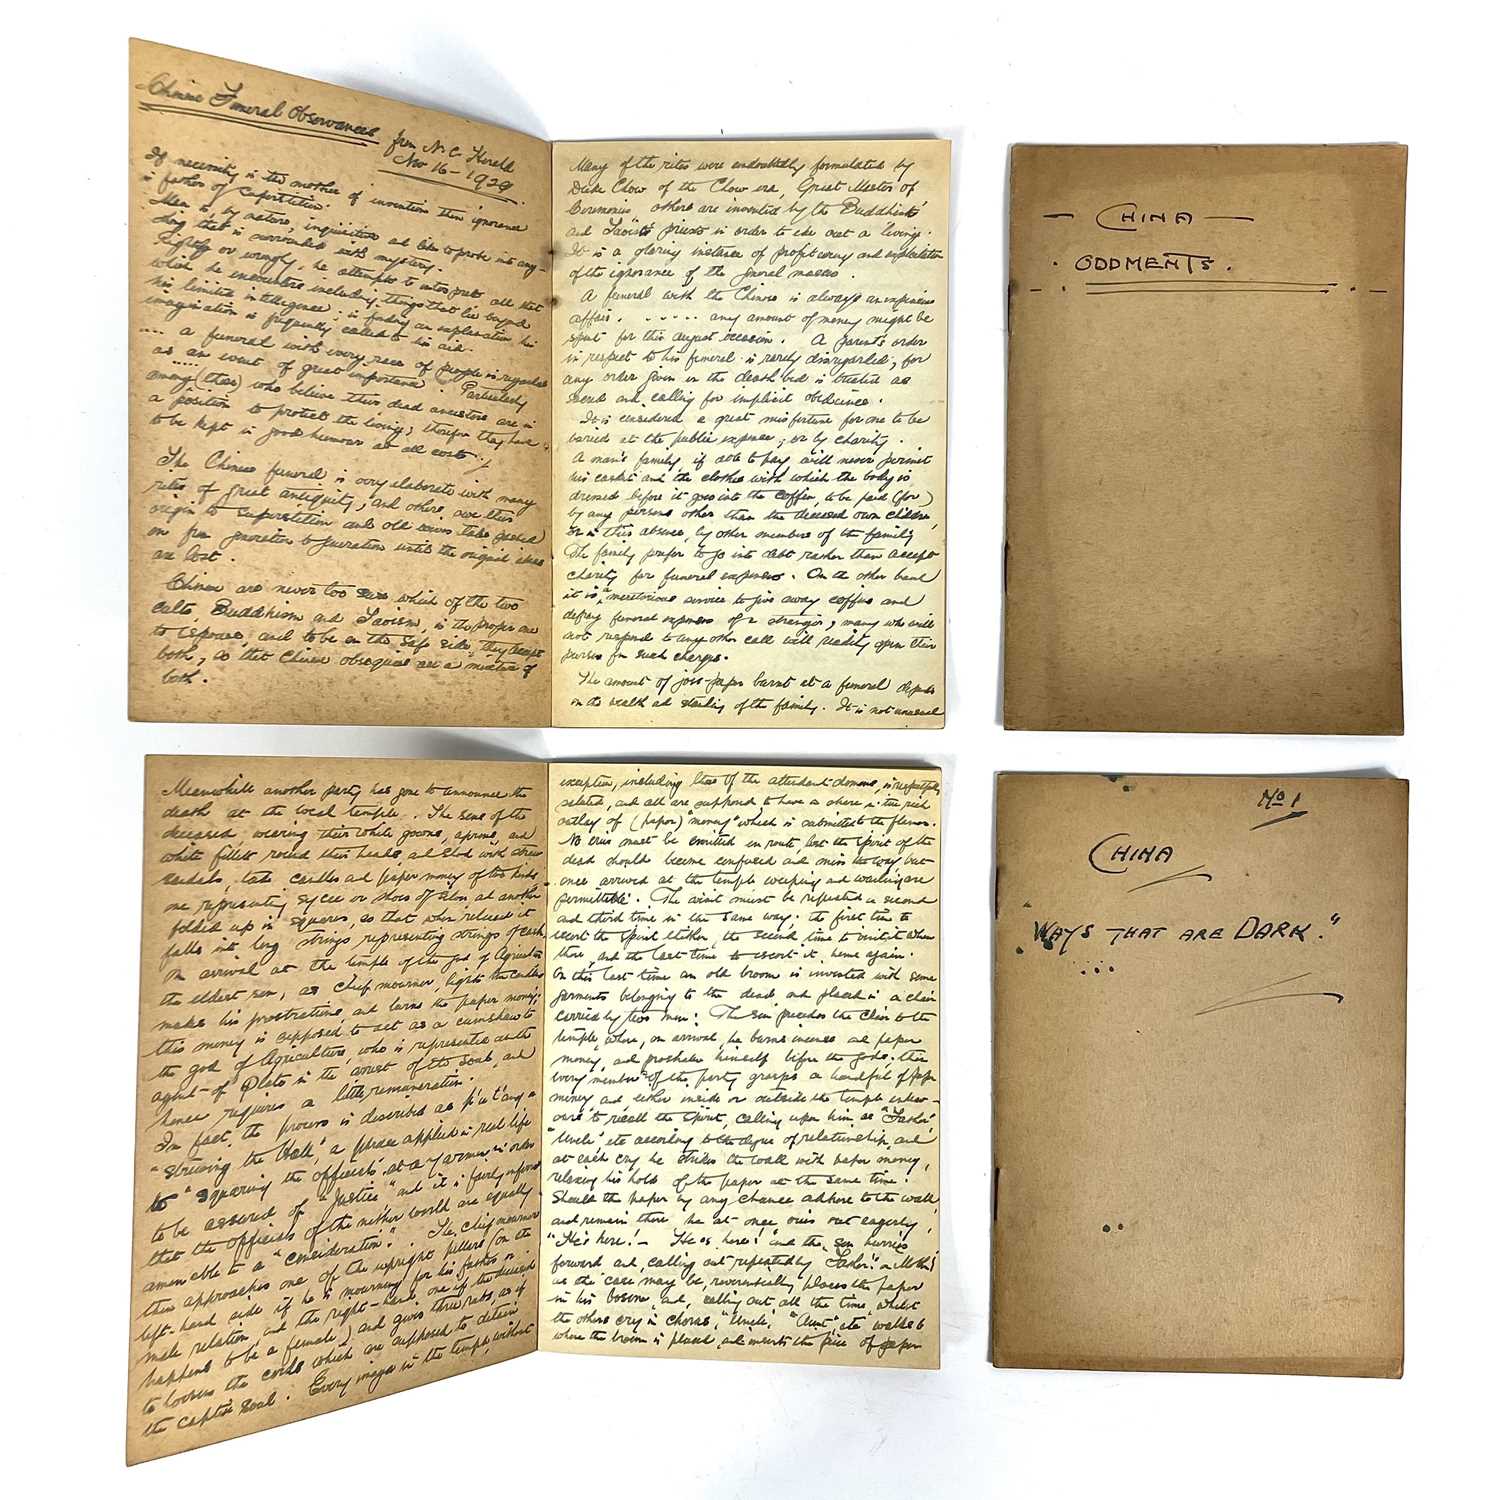 Chinese Funeral Observances from N.C. Herald
Nov 16 - 1929.
If necessity is the mother of invention then ignorance
is father of superstition.
Man is, by nature, inquisitive and likes to probe into any-
thing that is surrounded with mystery.
Rightly or wrongly, he attempts to interpret all that
which he encounters including things that lie beyond
his limited intelligence; in finding an explanation his
imagination is frequently called to his aid.
.... a funeral with every race of people is regarded
as an event of great importance. Particularly
among (those) who believe their dead ancestors are in
a position to protect the living; therefore they have
to be kept in good humour at all costs.
The Chinese funeral is very elaborate with many
rites of great antiquity, and others owe their
origin to superstition and old wives tales passed
on from generation to generation until the original ideas
are lost.
Chinese are never too sure which of the two
cults Buddhism and Taoism, is the proper one
to espouse, and to be on the safe side, they accept
both, so that Chinese obsequies are a mixture of
both.
Many of the rites were undoubtedly formulated by
Duke Chow of the Chow era, Great Master of
Ceremonies others are invented by the Buddhist
and Taoist priests in order to eke out a living.
It is a glaring instance of profiteering and exploitation
of the ignorance of the general masses.
A funeral with the Chinese is always an expensive
affair. ..... any amount of money might be
spent for this august occasion. A parent's order
in respect to his funeral is rarely disregarded; for
any order given on the death bed is treated as
sacred and calling for implicit obedience.
It is considered a great misfortune for one to be
buried at the public expense, or by charity.
A man's family, if able to pay will never permit
his casket and the clothes with which the body is
dressed before it goes into the coffin, to be paid (for)
by any persons other than the deceased own children,
or in their absence, by other members of the family
The family prefer to go into debt rather than accept
charity for funeral expenses. On the other hand
it is a meritorious service to give away coffins and
defray funeral expenses of a stranger; many who will
not respond to any other call will readily open their
purses for such charges.
The amount of joss-paper burnt at a funeral depends
on the wealth and standing of the family. It is not unusual
- CHINA -
ODDMENTS.
Meanwhile another party has gone to announce the
death at the local temple. The sons of the
deceased, wearing their white gowns, aprons, and
white fillets round their heads, and shod with straw
sandals, take candles and paper money of two kinds
one representing sycee or shoes of silver and another
folded up in squares, so that when released it
falls into long strings representing strings of cash.
On arrival at the temple of the god of Agriculture
the eldest son, as chief mourner, lights the candles
makes his prostrations and burns the paper money;
this money is supposed to act as a cumshaw to
the god of Agriculture, who is represented as the
agent of Pluto in the arrest of the soul, and
hence requires a little remuneration.
In fact, the process is described as
"strewing the Hall", a phrase applied in real life
to "squaring the officials" at a Yamen in order
to be assured of "Justice" and it is fairly inferred
that the officials of the nether world are equally
amenable to a "consideration". The chief mourner
then approaches one of the upright pillars (on the
left-hand side if he is mourning for his father or
male relation, and the right-hand one if the deceased
happens to be a female) and gives three rubs, as if
to loosen the cords which are supposed to detain
the captive soul. Every image in the temple, without
exception, including those of the attendant demons, is respectfully
saluted, and all are supposed to have a share in the rich
outlay of (paper) "money" which is submitted to the flames.
No cries must be emitted en route, lest the spirit of the
dead should become confused and miss the way but
once arrived at the temple weeping and wailing are
permittable. The visit must be repeated a second
and third time in the same way: the first time to
escort the spirit thither, the second time to visit it when
there, and the last time to escort it home again.
On this last time an old broom is invested with some
garments belonging to the dead and placed in a chair
carried by two men: The son precedes the chair to the
temple, where, on arrival, he burns incense and paper
money and prostrates himself before the gods; then
every member of the party grasps a handful of paper
money and either inside or outside the temple endeav-
ours to recall the spirit, calling upon him as "Father",
"Uncle" etc according to the degree of relationship, and
at each cry he strikes the wall with paper money,
relaxing his hold of the paper at the same time.
Should the paper by any chance adhere to the wall
and remain there he at once cries out eagerly,
"He's here! - He is here!" and the son hurries
forward and, calling out repeatedly "Father!" or Mother!
as the case may be, reverentially places the paper
in his bosom, and, calling out all the time, whilst
the others cry in chorus, "Uncle", "Aunt", etc walks to
where the broom is placed, and inserts the piece of paper
No 1
CHINA
WAYS THAT ARE DARK."